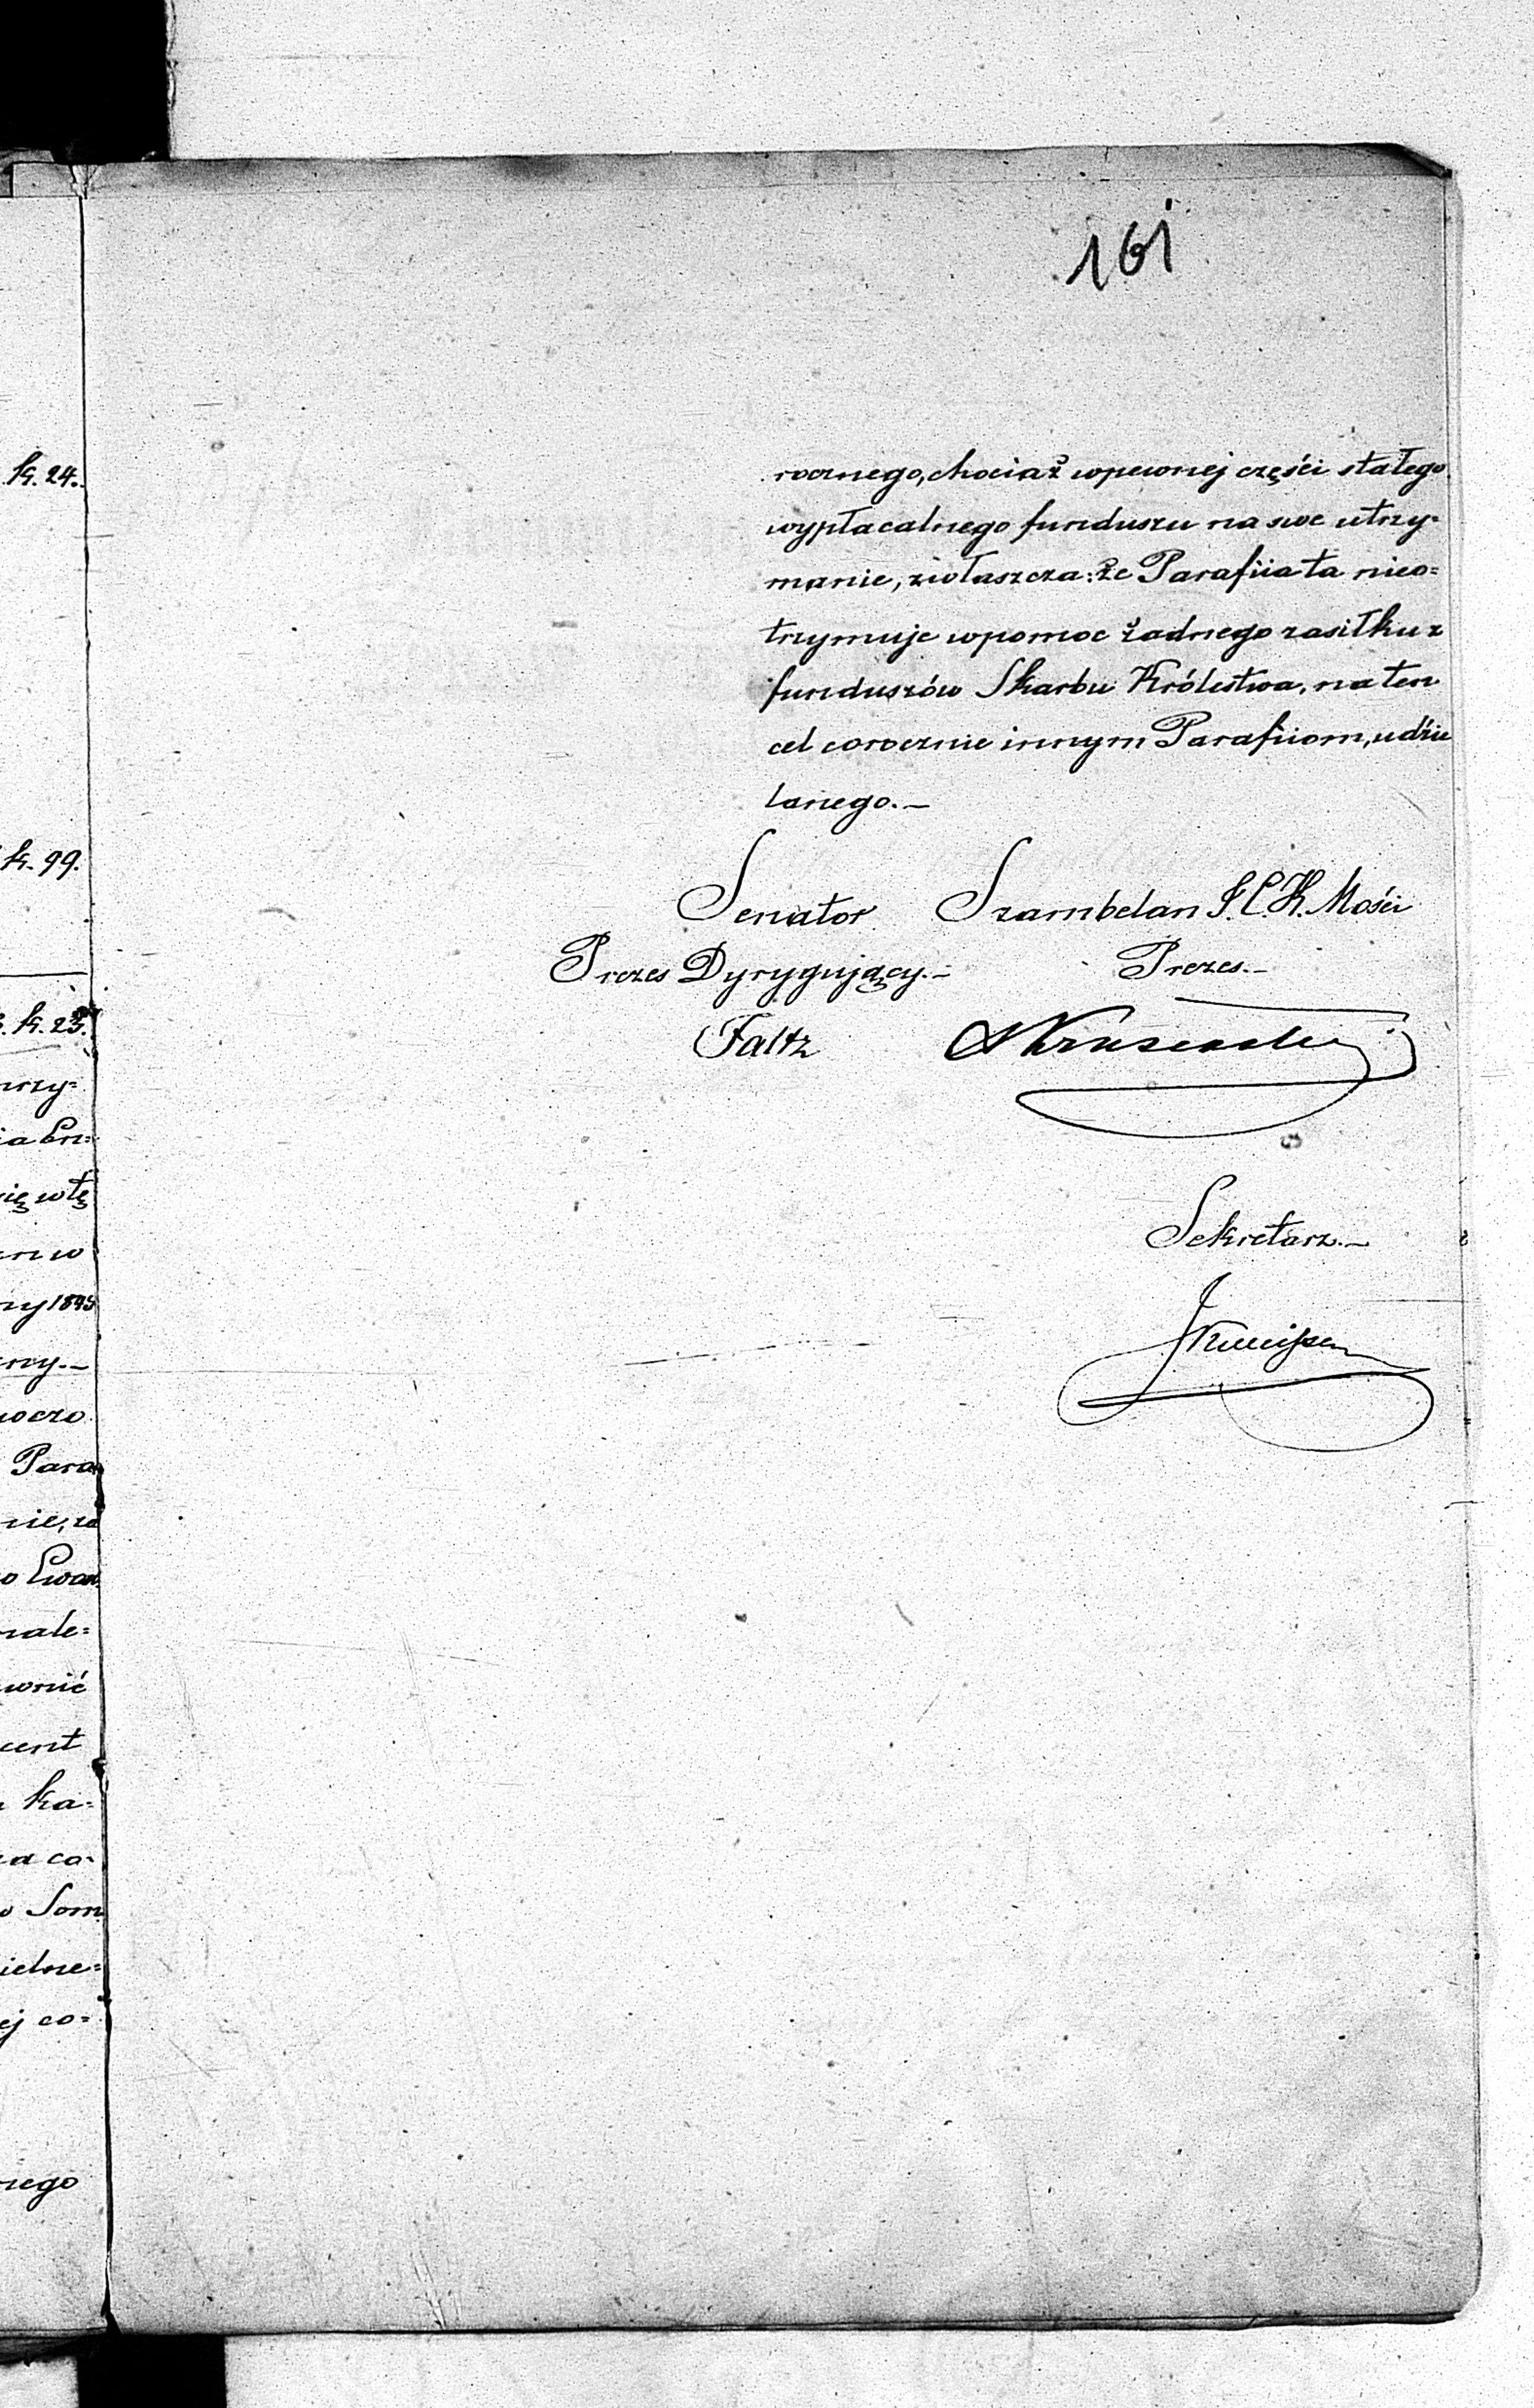 161
rocznego, chociaż wpewnej części stałego
wypłacalnego funduszu na swe utrzy=
manie, zwłaszcza: że Parafiia ta nieo=
trzymuje wpomoc żadnego zasiłku z
funduszów Skarbu Królestwa, na ten
cel corocznie innym Parafiiom, udzie
lanego.—
Senator Szambelan J. C. K. Mości
Prezes Dyrygujący.— Prezes.—
Faltz
Sekretarz.—
k. 24.
k. 99.
k. 23.
rzy=
ię wtę
w
1845
ny.—
Para
nie, za
o Ewan
nale=
wnić
cent
ka=
za co=
Som
ielne=
ej co=
nego